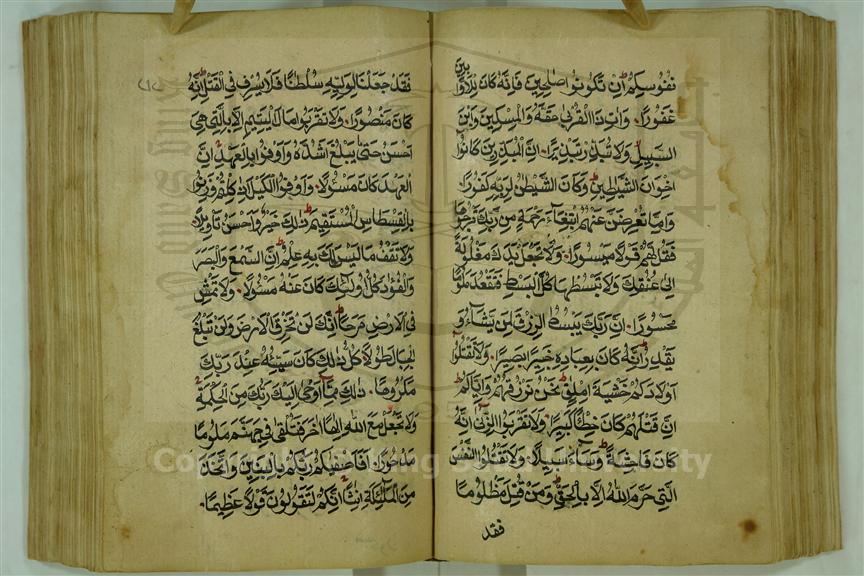 نفوسكم ان تكونوا صلحين فانه كان للاوا
بين
غفورا وات ذا القربى حقه والمسكين وابن
السبيل ولا تبذر تبذيرا ان المبذرين كانوا
اخوان الشيطين وكان الشيطن لربه كفورا
واما تعرضن عنهم ابتغاء رحمة من ربك ترجوها
فقل لهم قولا ميسورا ولا تجعل يدك مغلولة
الى عنقك ولا تبسطها كل البسط فتقعد ملوما
محسورا ان ربك يبسط الرزق لمن يشاء و
يقدر انه كان بعباده خبيرا بصيرا ولا تقتلوا
اولادكم خشية املق نحن نرزقهم واياكم
ان قتلهم كان خطئا كبيرا ولا تقربوا الزنى انه
كان فاحشة وساء سبيلا ولا تقتلوا النفس
التي حرم الله الا بالحق ومن قتل مظلوما
فقد
فقد جعلنا لوليه سلطنا فلا يسرف في القتل انه
كان منصورا ولا تقربوا مال اليتيم الا بالتي هي
احسن حتى يبلغ اشده واوفوا بالعهد ان
العهد كان مسئولا واوفوا الكيل اذا كلتم وزنوا
بالقسطاس المستقيم ذلك خير واحسن تاويلا
ولا تقف ما ليس لك به علم ان السمع والبصر
والفؤاد كل اولئك كان عنه مسئولا ولا تمش
في الارض مرحا انك لن تخرق الارض ولن تبلغ
الجبال طولا كل ذلك كان سيئه عند ربك
مكروها ذلك مما اوحى اليك ربك من الحكمة
ولا تجعل مع الله الها اخر فتلقى في جهنم ملوما
مدحورا افاصفيكم ربكم بالبنين واتخذ
من الملئكة اناثا انكم لتقولون قولا عظيما
King Saud University